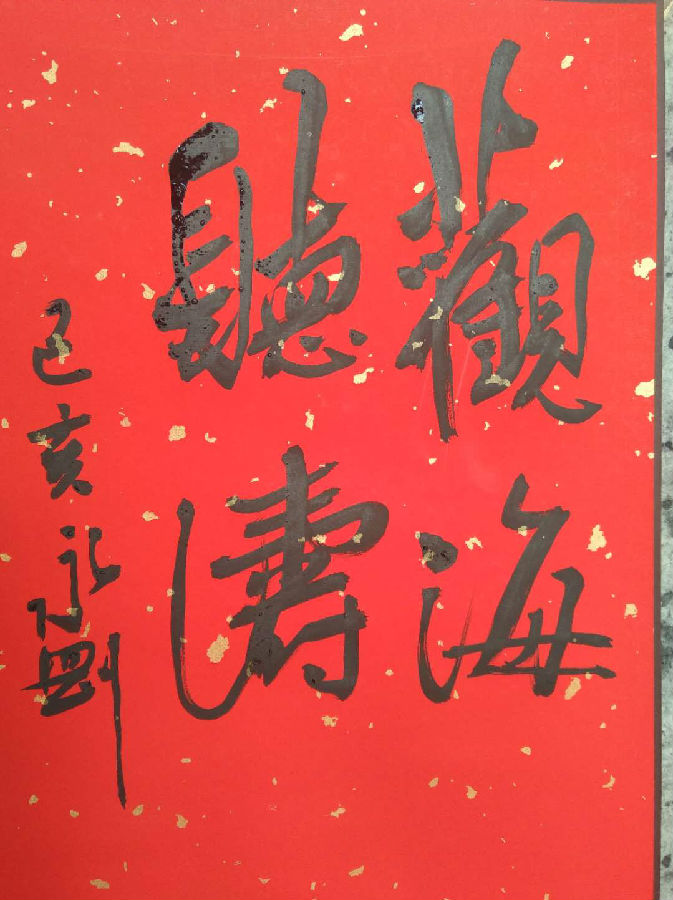 觀海
聽濤
己亥永剛